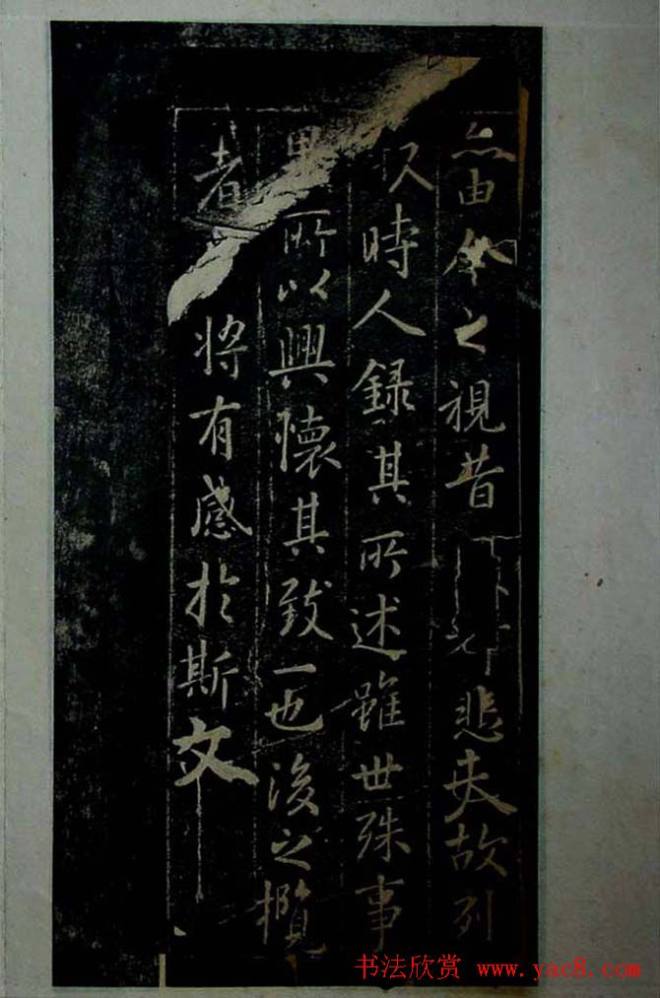 亦由今之視昔悲夫故列
時人録其所述雖世殊事
所以興懷其致一也後之攬
者將有感於斯文
书法欣赏 www.yac8.com